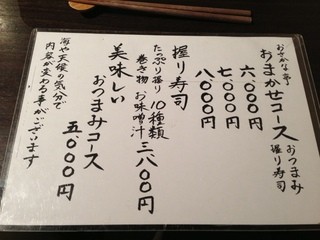 おさかな亭
おまかせコース おつまみ 握り寿司
六、〇〇〇円
七、〇〇〇円
八、〇〇〇円
握り寿司
たっぷり握り 10種類
巻き物 お味噌汁 三八〇〇円
美味しい
おつまみコース
五、〇〇〇円
海や天候の気分で
内容が変わる事がございます